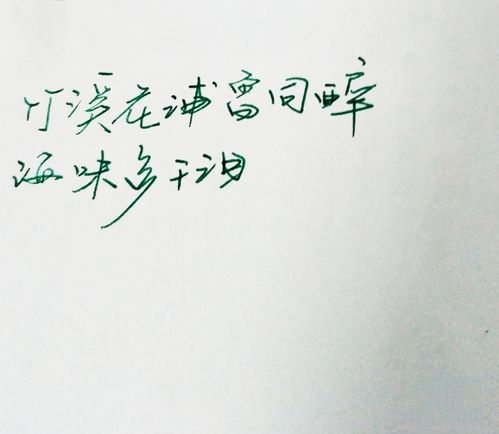 竹溪花浦曾同醉
海味多于酒